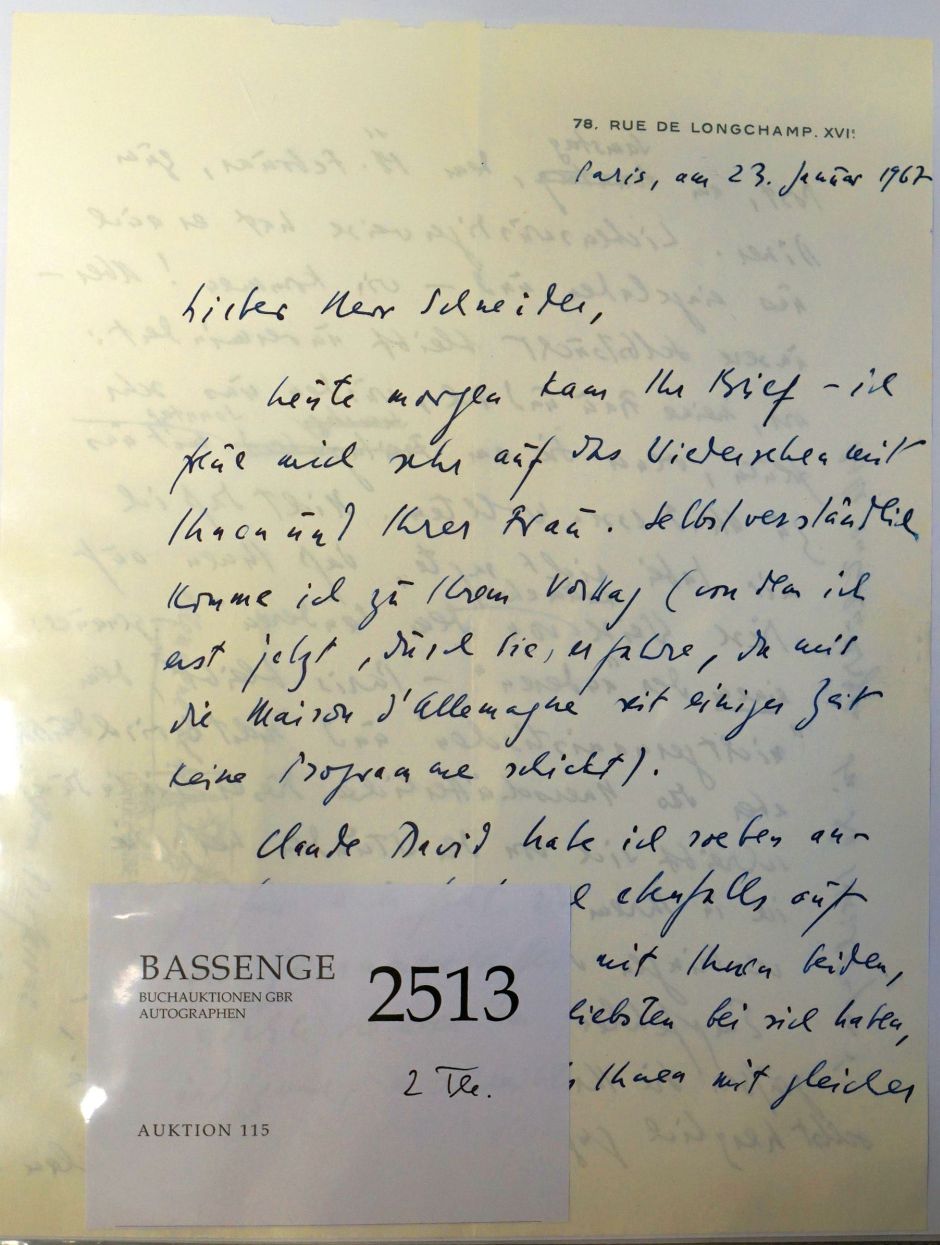 78, RUE DE LONGCHAMP. XVIᵉ
Paris, am 23. Januar 1967
Lieber Herr Schneider,
heute morgen kam Ihr Brief – ich
freue mich sehr auf das Wiedersehen mit
Ihnen und Ihrer Frau. Selbstverständlich
komme ich zu Ihrem Vortrag (von dem ich
erst jetzt, durch Sie, erfahre, da mir
die Maison d'Allemagne seit einiger Zeit
keine Programme schickt).
Claude David habe ich soeben an-
ebenfalls auf
mit Ihnen beiden,
liebsten bei sich haben,
Ihnen mit gleicher
BASSENGE
BUCHAUKTIONEN GBR
AUTOGRAPHEN
2513
2 Tle.
AUKTION 115